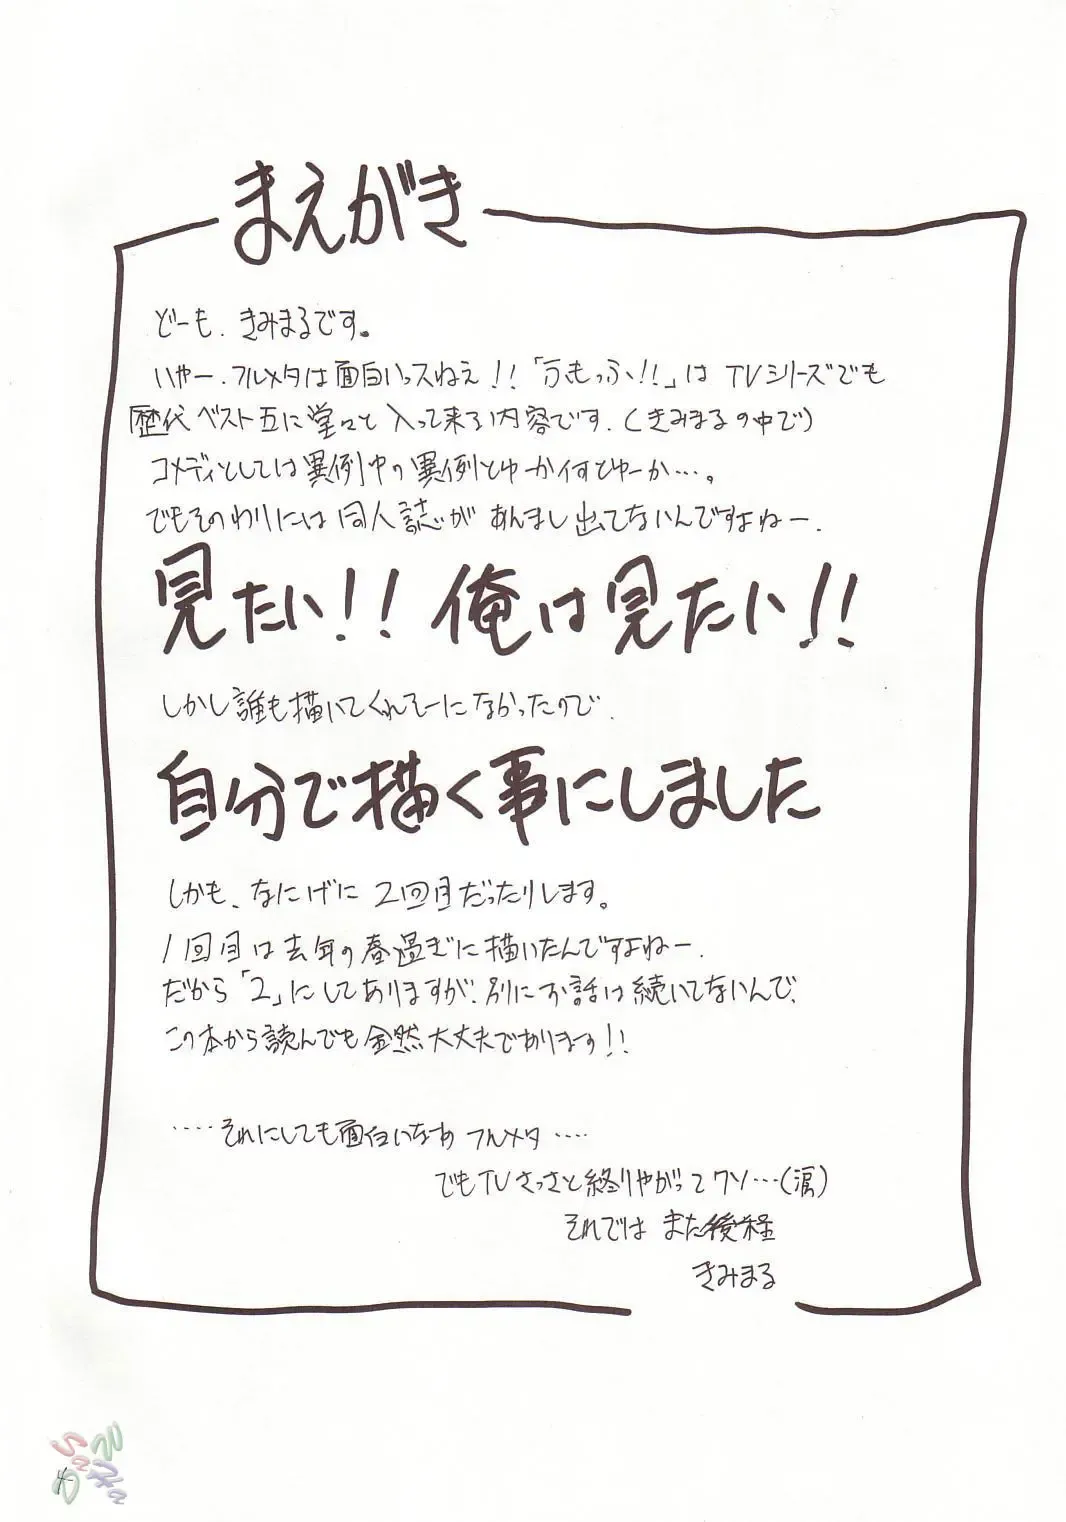 まえがき
どーも、きみまるです。
いやー、フルメタは面白いっスねえ!!「ふもっふ!!」はTVシリーズでも
歴代ベスト五に堂々と入って来る内容です。(きみまるの中で)
コメディとしては異例中の異例とゆーか何すとゆーか…。
でもそのわりには同人誌があんまし出てないんですよねー。
見たい!!俺は見たい!!
しかし誰も描いてくれそーになかったので、
自分で描く事にしました
しかも、なにげに2回目だったりします。
1回目は去年の春過ぎに描いたんですよねー。
だから「2」にしてありますが、別にお話は続いてないんで、
この本から読んでも全然大丈夫であります!!
……それにしても面白いなあフルメタ……
でもTVさっさと終りやがってクソ…(涙)
それでは また後程
きみまる
4